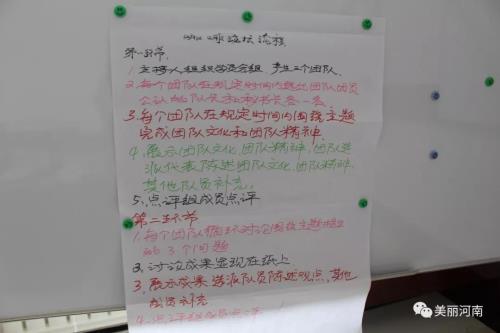 论坛流程
第一环节
1.主持人组织学员分组,产生三个团队.
2.每个团队在规定时间内选出团队团员
公认的队长和秘书长各一名
3.每个团队在规定时间内围绕主题
完成团队文化和团队精神.
4.展示团队文化、团队精神,团队选
派代表陈述团队文化、团队精神.
其他队员补充.
5.点评组成员点评
第二环节
1.每个团队循环讨论围绕主题
的3个问题
2.讨论成果呈现在纸上
3.展示成果选派队员陈述观点,其他
成员补充
4.点评组成员点评
美丽河南